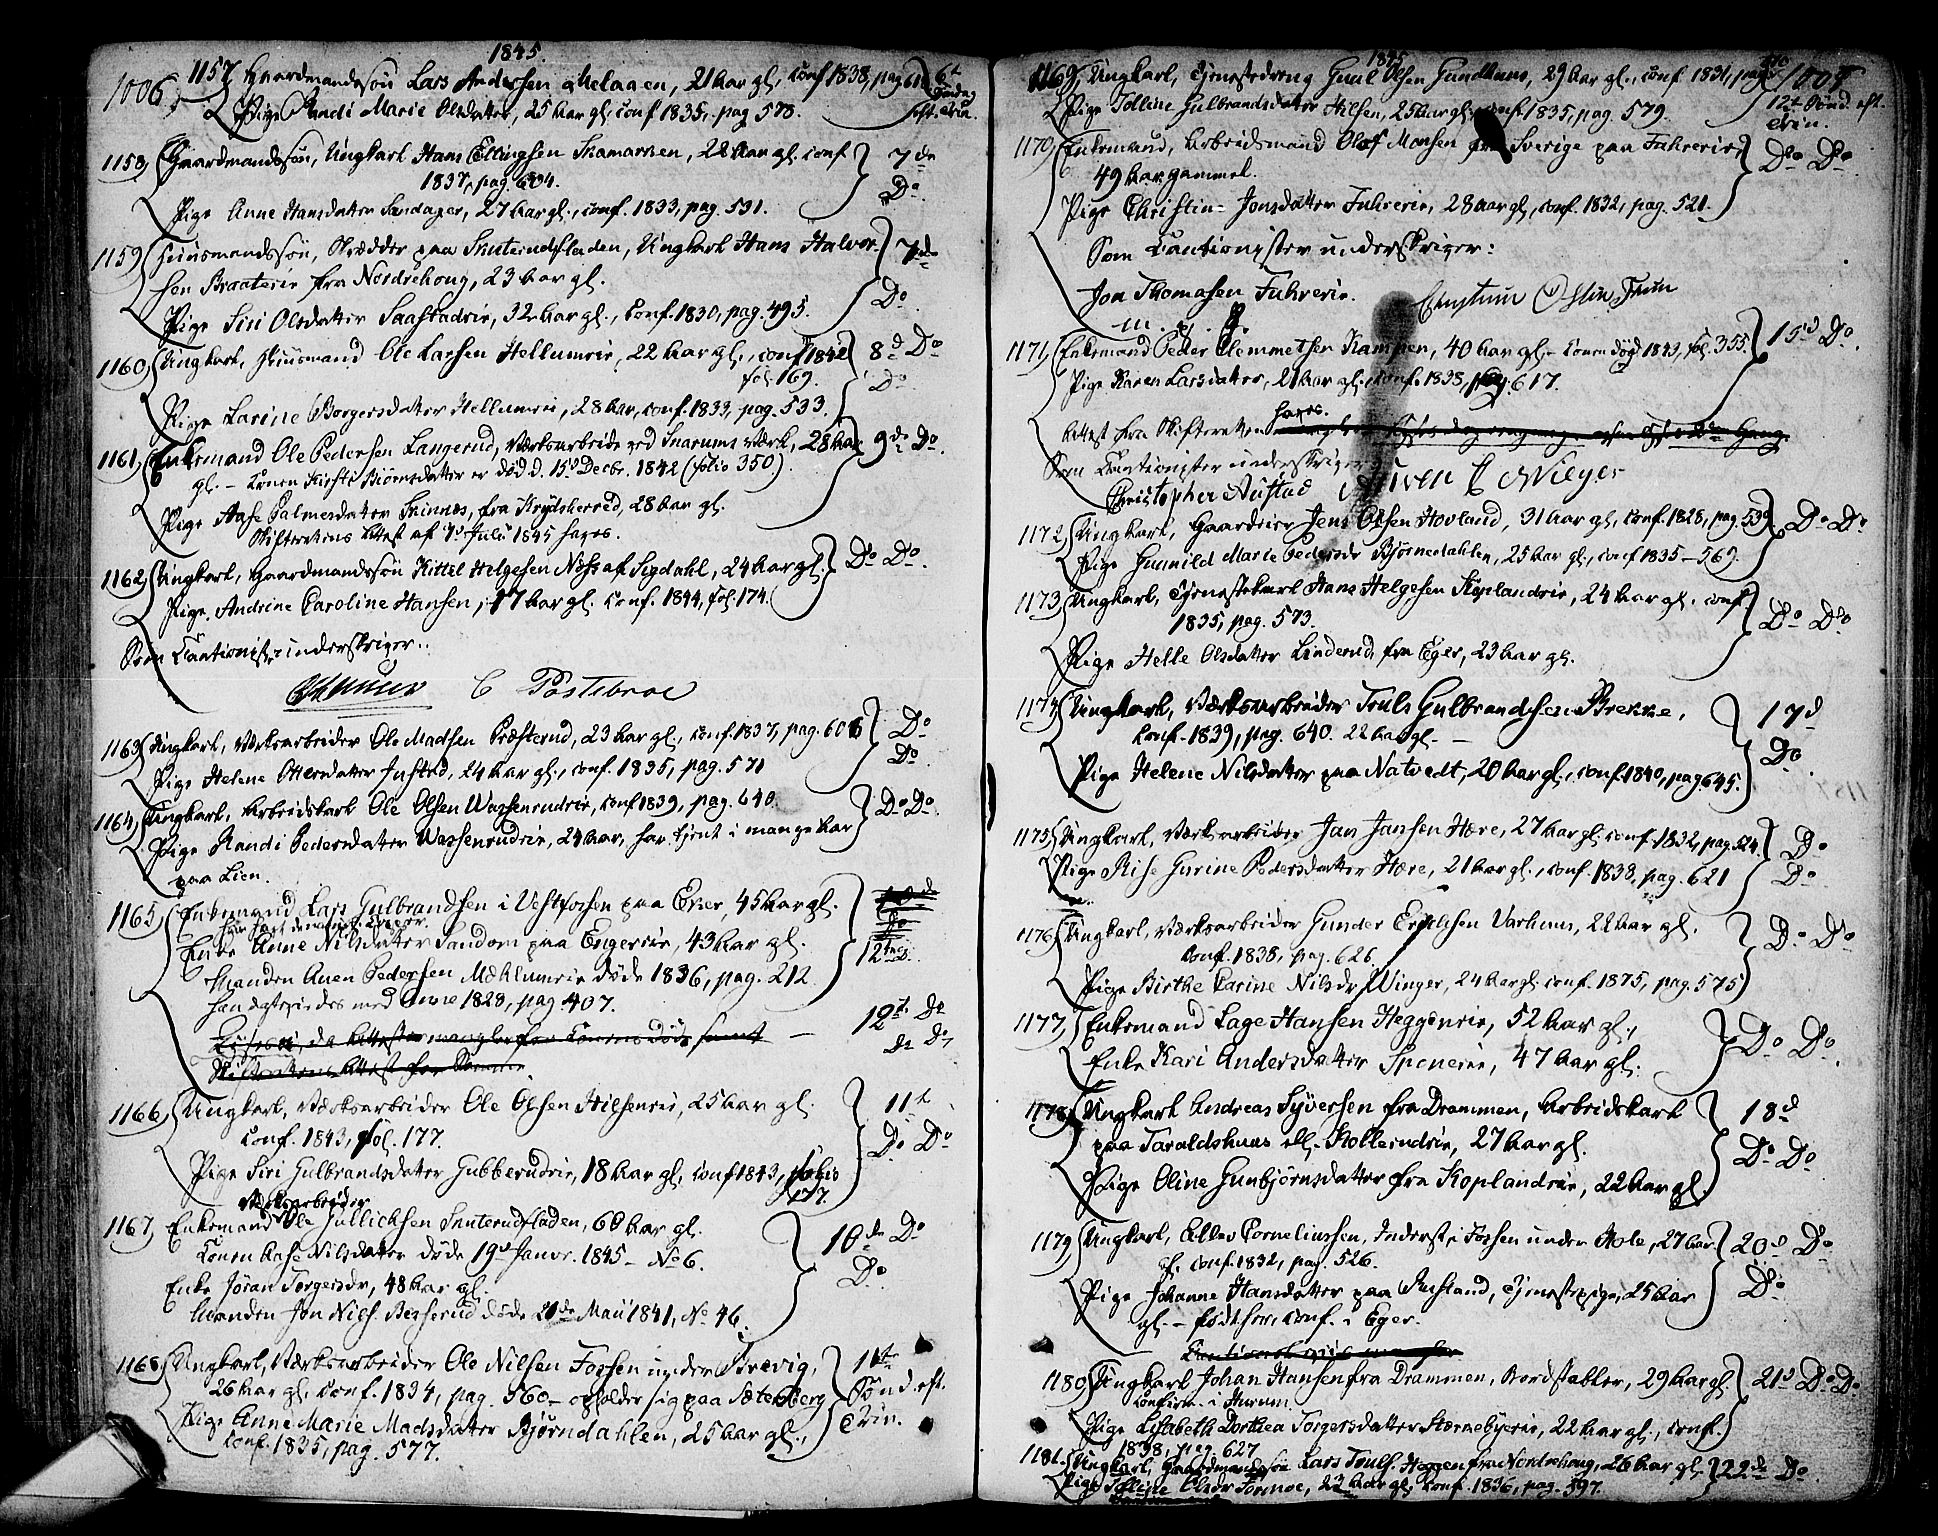 1845.
1006.
1157. Gaardmandssøn Lars Andersen Melaaen, 21 Aar gl., Conf 1838, pag 618
6te Søndag
Pige Randi Marie Olsdatter, 25 Aar gl. Conf 1835, pag 578.
eft. Trin.
1158, Gaardmandssøn, Ungkarl Hans Ellingsen, 22 Aar gl. Conf
7de
1837, pag. 604.
Do.
Pige Anne Hansdatter Sandager, 27 Aar gl., Conf. 1833, pag. 531.
1159, Huusmandssøn, Skrædder paa Snuterudfladen, Ungkarl Hans Halvor-
7de
sen Braaterie fra Nordrehoug, 23 Aar gl.
Do.
Pige Siri Olsdatter Saastadrie, 32 Aar gl., Conf. 1830, pag. 495.
1160, Ungkarl, Huusmand Ole Larsen Hellumrie, 22 Aar gl., Conf 1842
8d Do
fol. 169.
Do.
Pige Karine Borgersdatter Hellumrie, 28 Aar, Conf. 1833, pag. 533.
1161, Enkemand Ole Pedersen Langerud, Værksarbeider ved Snarums Værk, 28 Aar
9de Do.
gl. – Konen Kirsti Biørnsdatter er død d. 15d Decbr. 1842 (folio 350).
Pige Aase Palmesdatter Skinnes, fra Krydsherred, 28 Aar gl.
Skifterettens Attest af 7d Juli 1845 haves.
1162, Ungkarl, Gaardmandssøn Kittel Helgesen Næss af Sigdahl, 24 Aar gl.
Do Do.
Pige Andrine Caroline Hansen, 17 Aar gl. Conf. 1844, fol. 174.
Som Cautionister underskriver:
C Pastebroe
1163, Ungkarl, Værksarbeider Ole Madsen Præsterud, 23 Aar gl., Conf. 1837, pag. 606
Do
Pige Helene Ottersdatter, 24 Aar gl., Conf. 1835, pag. 571
Do.
1164, Ungkarl, Arbeidskarl Ole Olsen Wassenrudrie, Conf 1839, pag. 640.
Do Do.
Pige Randi Pedersdatter Wassenrudrie, 24 Aar, har tjent i mange Aar
paa Lien.
1165, Enkemand Lars Gulbrandsen i Vestfossen paa Eker, 45 Aar gl.
Enke Anne Nilsdatter Sandom paa Engerrie, 43 Aar gl.
12te
Manden Auen Pedersen Mæhlumrie døde 1836, pag. 212
han døde 1828, pag 407.
12te Do
Do Do
1166, Ungkarl, Værksarbeider Ole Olsen Hilsenrie, 25 Aar gl.
11te
Conf. 1843, fol. 177.
Do Do
Pige Siri Gulbrandsdatter Gubberudrie, 18 Aar gl., Conf 1843, folio
177.
Værksarbeider
1167, Enkemand Ole Gullichsen Snuterudfladen, 60 Aar gl.
10de Do
Konen Aase Nilsdatter døde 19d Janvr. 1845 – No 6.
Do.
Enke Jøran Torgersdr, 48 Aar gl.
Manden Jon Nils. Besserud døde 20de Mai 1841, No. 46.
1168, Ungkarl, Værksarbeider Ole Nilsen Fossen under Brevig,
11te
26 Aar gl. Conf. 1834, pag. 560 – opholder sig paa Sætersberg
Sønd. eft.
Pige Anne Marie Madsdatter Bjørndahlen, 25 Aar gl.,
Trin.
Conf. 1835, pag. 577.
1845
1007
1169, Ungkarl, Tjenestedreng Gunil Olsen Gundhuus, 29 Aar gl., Conf. 1831, pag
Pige Idline Gulbrandsdatter Hilsen, 25 Aar gl., Conf. 1835, pag. 579.
12te Sønd. eft.
Trin.
1170, Enkemand, Arbeidsmand Olof Monsen fra Sverige paa Fuhrerie,
Do Do.
49 Aar gammel.
Pige Christin Jonsdatter Fuhrerie, 28 Aar gl., Conf. 1832, pag. 521.
Som Cautionister underskriver:
Jon Thomasen Fuhrerie.
m. p. P.
1171, Enkemand Peder Clemmetsen Kampen, 40 Aar gl. – Konen død 1843, fol. 355.
15d Do.
Pige Karen Larsdatter, 21 Aar gl., Conf. 1838, pag. 617.
Attest fra Skifteretten haves.
Som Cautionister underskriver
Christopher Austad
1172, Ungkarl, Gaardeier Jens Olsen Hovland, 31 Aar gl., Conf. 1828, pag. 539.
Do Do
Pige Gunnild Marie Pedersdr Bjørnedahlen, 25 Aar gl., Conf 1835 – 569.
1173, Ungkarl, Tjenestekarl Hans Helgesen Koplandrie, 24 Aar gl. Conf.
Do Do
1835, pag. 573.
Pige Helle Olsdatter Linderud fra Eger, 23 Aar gl.
1174, Ungkarl, Værksarbeider Truls Gulbrandsen Brekke,
17d
Conf. 1839, pag. 640. 22 Aar gl. –
Do.
Pige Helene Nilsdatter paa Natvedt, 20 Aar gl., Conf. 1840, pag. 645.
1175, Ungkarl, Værksarbeider Jan Jansen Hære, 27 Aar gl., Conf. 1832, pag 524.
Do
Pige Rise Gurine Pedersdatter Hære, 21 Aar gl., Conf 1838, pag. 621
Do.
1176, Ungkarl, Værksarbeider Gunder Erichsen Varhuus, 22 Aar gl.
Do Do
Conf. 1838, pag. 626.
Pige Birthe Carine Nilsdr Winger, 24 Aar gl. Conf. 1875, pag. 575
1177, Enkemand Lage Hansen Heggenrie, 52 Aar gl.,
Do Do.
Enke Kari Andersdatter Sponerie, 47 Aar gl.
1178, Ungkarl Andreas Syversen fra Drammen, Arbeidskarl
18d
paa Taraldshuus ell. Hollerudrie, 27 Aar gl.
Do Do
Pige Oline Gunbjørnsdatter fra Koplandrie, 22 Aar gl.
1179, Ungkarl, Ellev Corneliussen, Inderst i Fossen under Hole, 27 Aar
20d Do
gl. Conf. 1832, pag. 526.
Do.
Pige Johanne Hansdatter paa Ruhland, Tjenestepige, 25 Aar
gl. – født her, Conf. i Eger.
1180, Ungkarl Johan Hansen fra Drammen, Bordstabler, 29 Aar gl.
21d Do Do
Confirm. i Hurum.
Pige Lisabeth Dorthea Torgersdatter Stærnebyerie, 22 Aar gl., Conf.
1838, pag. 627
1181. Ungkarl, Gaardmandssøn Lars Truls. Heggen fra Nordrehoug, 26 Aar gl.
22de Do.
Pige Idline Olsdr Tormoe, 23 Aar gl. Conf. 1836, pag. 597.